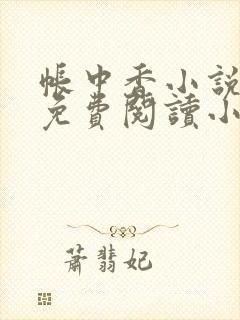 帳中香小說
免費閱讀小
蕭翡妃